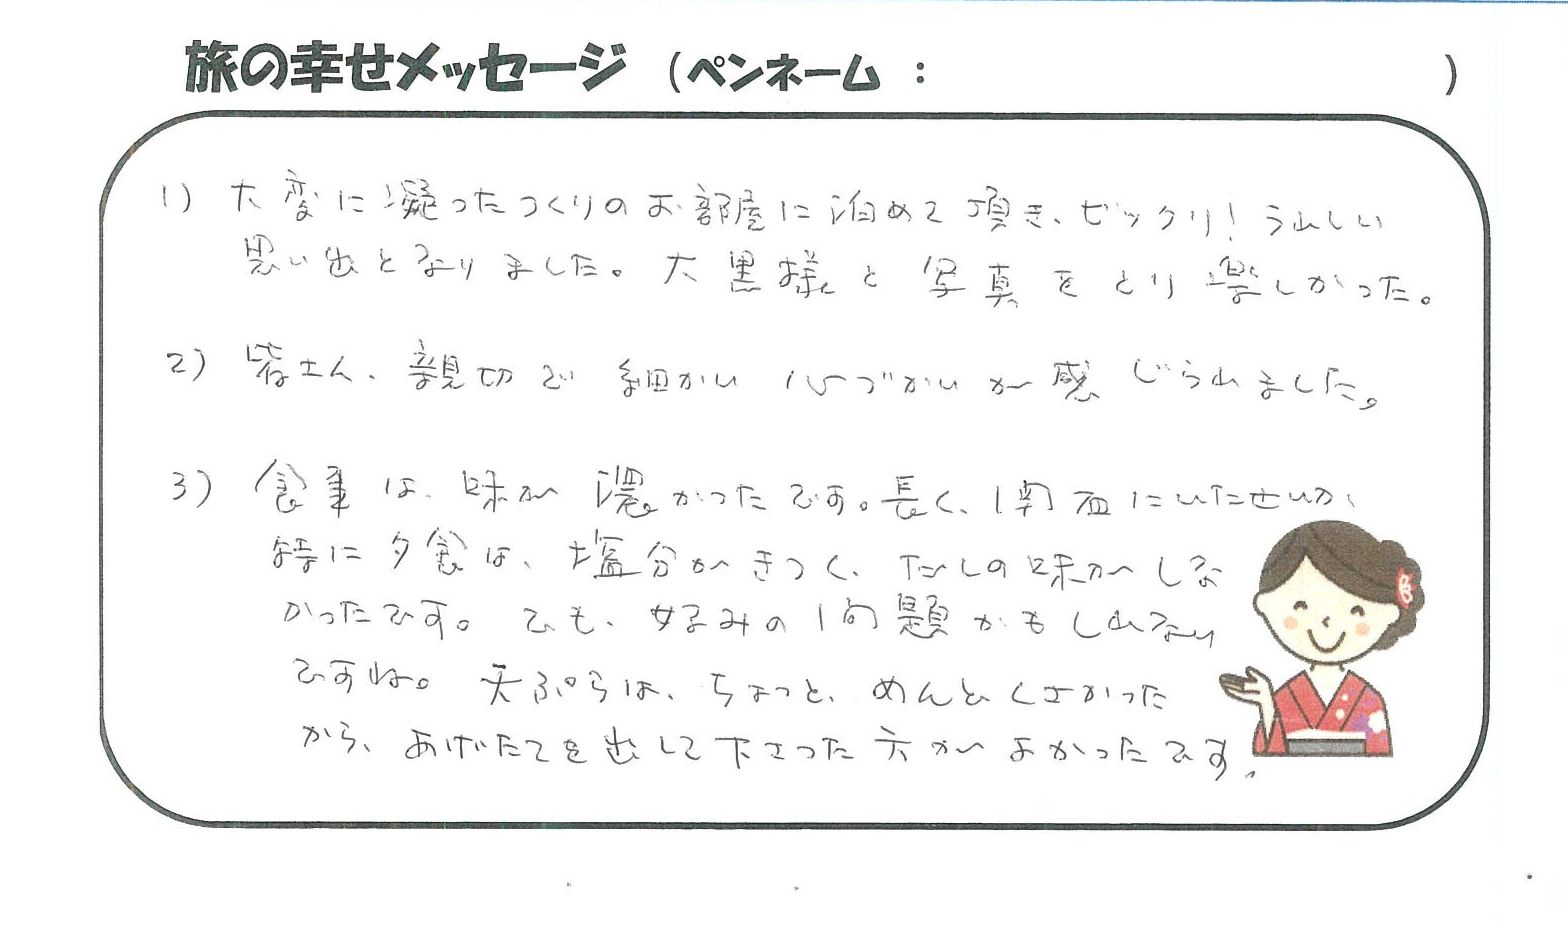 旅の幸せメッセージ (ペンネーム : )
1) 大変に凝ったつくりのお部屋に泊めて頂き、ビックリ! うれしい
思い出となりました。大黒様と写真をとり楽しかった。
2) 皆さん、親切で細かい心づかいが感じられました。
3) 食事は、味が濃かったです。長く、関西にいたせいか、
特に夕食は、塩分がきつく、だしの味がしな
かったです。でも、好みの問題かもしれない
ですね。天ぷらは、ちょっと、めんどくさかった
から、あげたてを出して下さった方がよかったです。